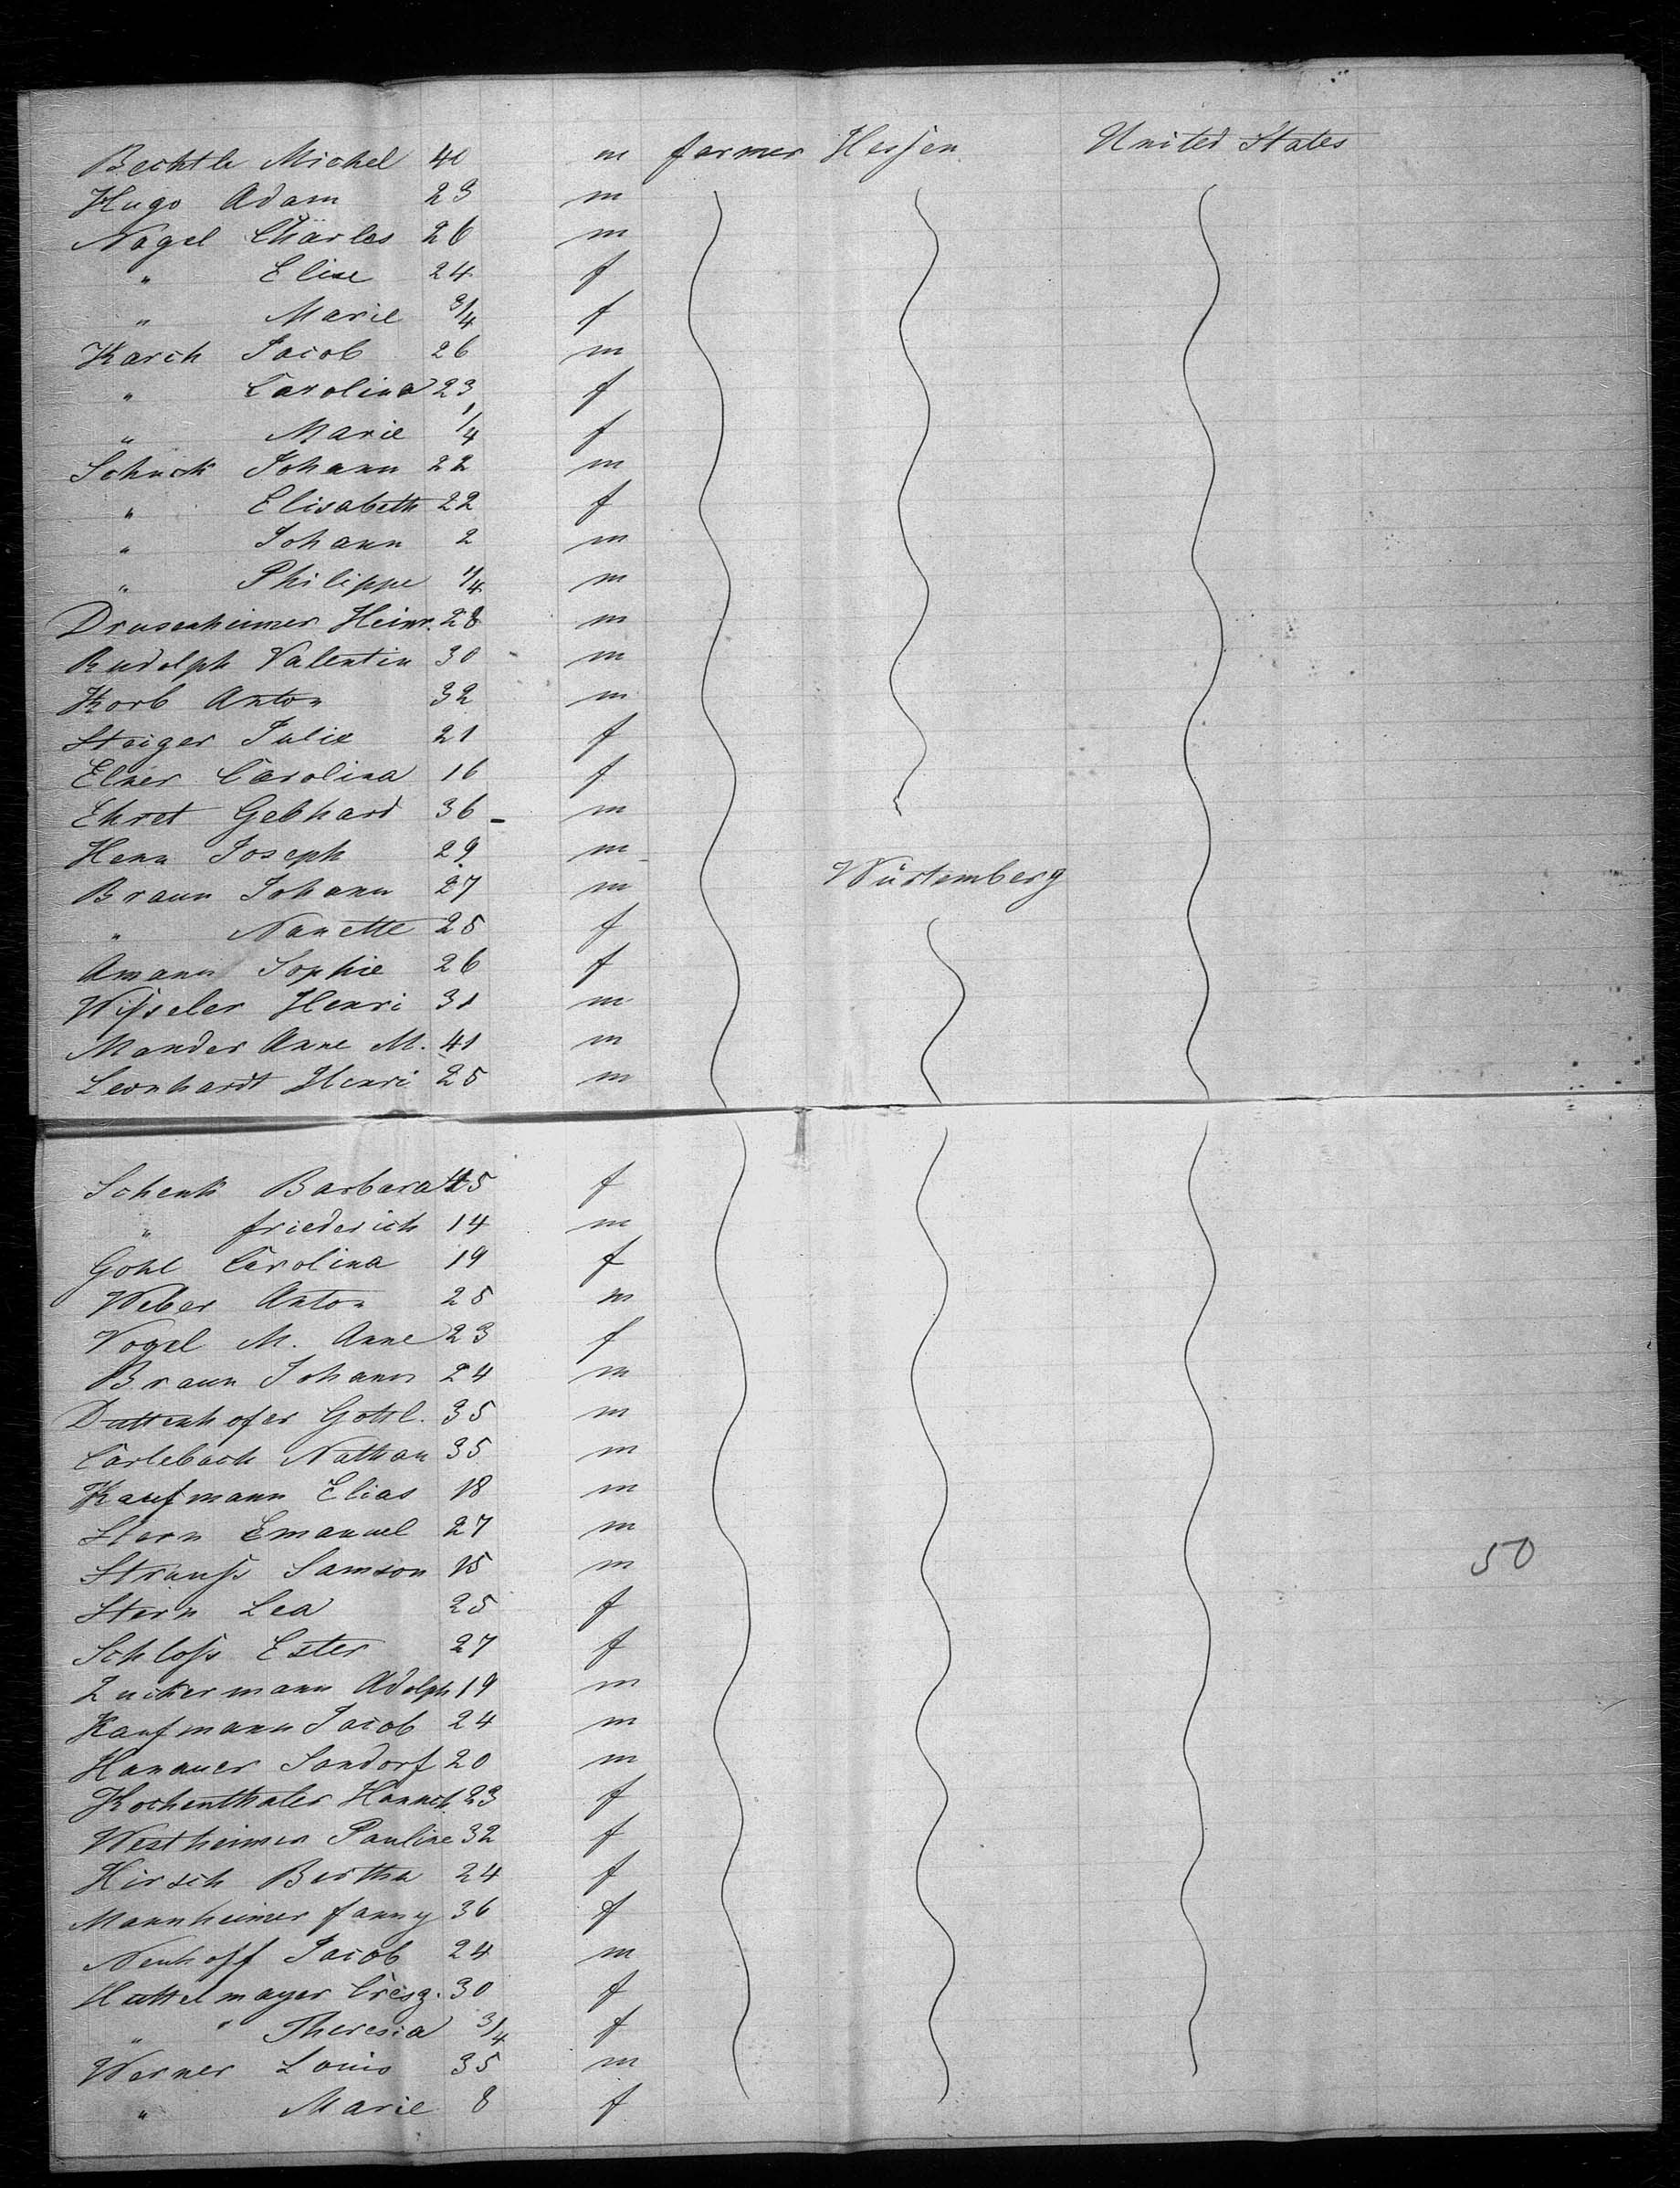 Bechtle Michel 40 m farmer Hessen United States
Hugo Adam 23 m
Nagel Charles 26 m
" Elise 24 f
" Marie 3/4 f
Karch Jacob 26 m
" Carolina 23 f
" Marie 1/4 f
Schuck Johann 22 m
" Elisabeth 22 f
" Johann 2 m
" Philippe 1/4 m
Drusenheimer Heinr. 28 m
Rudolph Valentin 30 m
Korb Anton 32 m
Steiger Julie 21 f
Elner Carolina 16 f
Ehret Gebhard 36 - m
Henn Joseph 29 m
Braun Johann 27 m Würtemberg
" Nanette 25 f
Amann Sophie 26 f
Wißeler Henri 31 m
Mander Anne M. 41 m
Leonhardt Henri 25 m
Schenk Barbara 45 f
" friederich 14 m
Gohl Carolina 19 f
Weber Anton 25 m
Vogel M. Anne 23 f
Braun Johann 24 m
Duttenhofer Gottl. 35 m
Carlebach Nathan 35 m
Kaufmann Elias 18 m
Stern Emanuel 27 m
Strauß Samson 15 m 50
Stern Lea 25 f
Schloß Ester 27 f
Zuckermann Adolph 19 m
Kaufmann Jacob 24 m
Hanauer Sandorf 20 m
Kochenthaler Hannch 23 f
Westheimer Pauline 32 f
Hirsch Bertha 24 f
Mannheimer fanny 36 f
Neuhoff Jacob 24 m
Huttelmayer Cresz. 30 f
" " Theresia 3/4 f
Werner Louis 35 m
" Marie 8 f